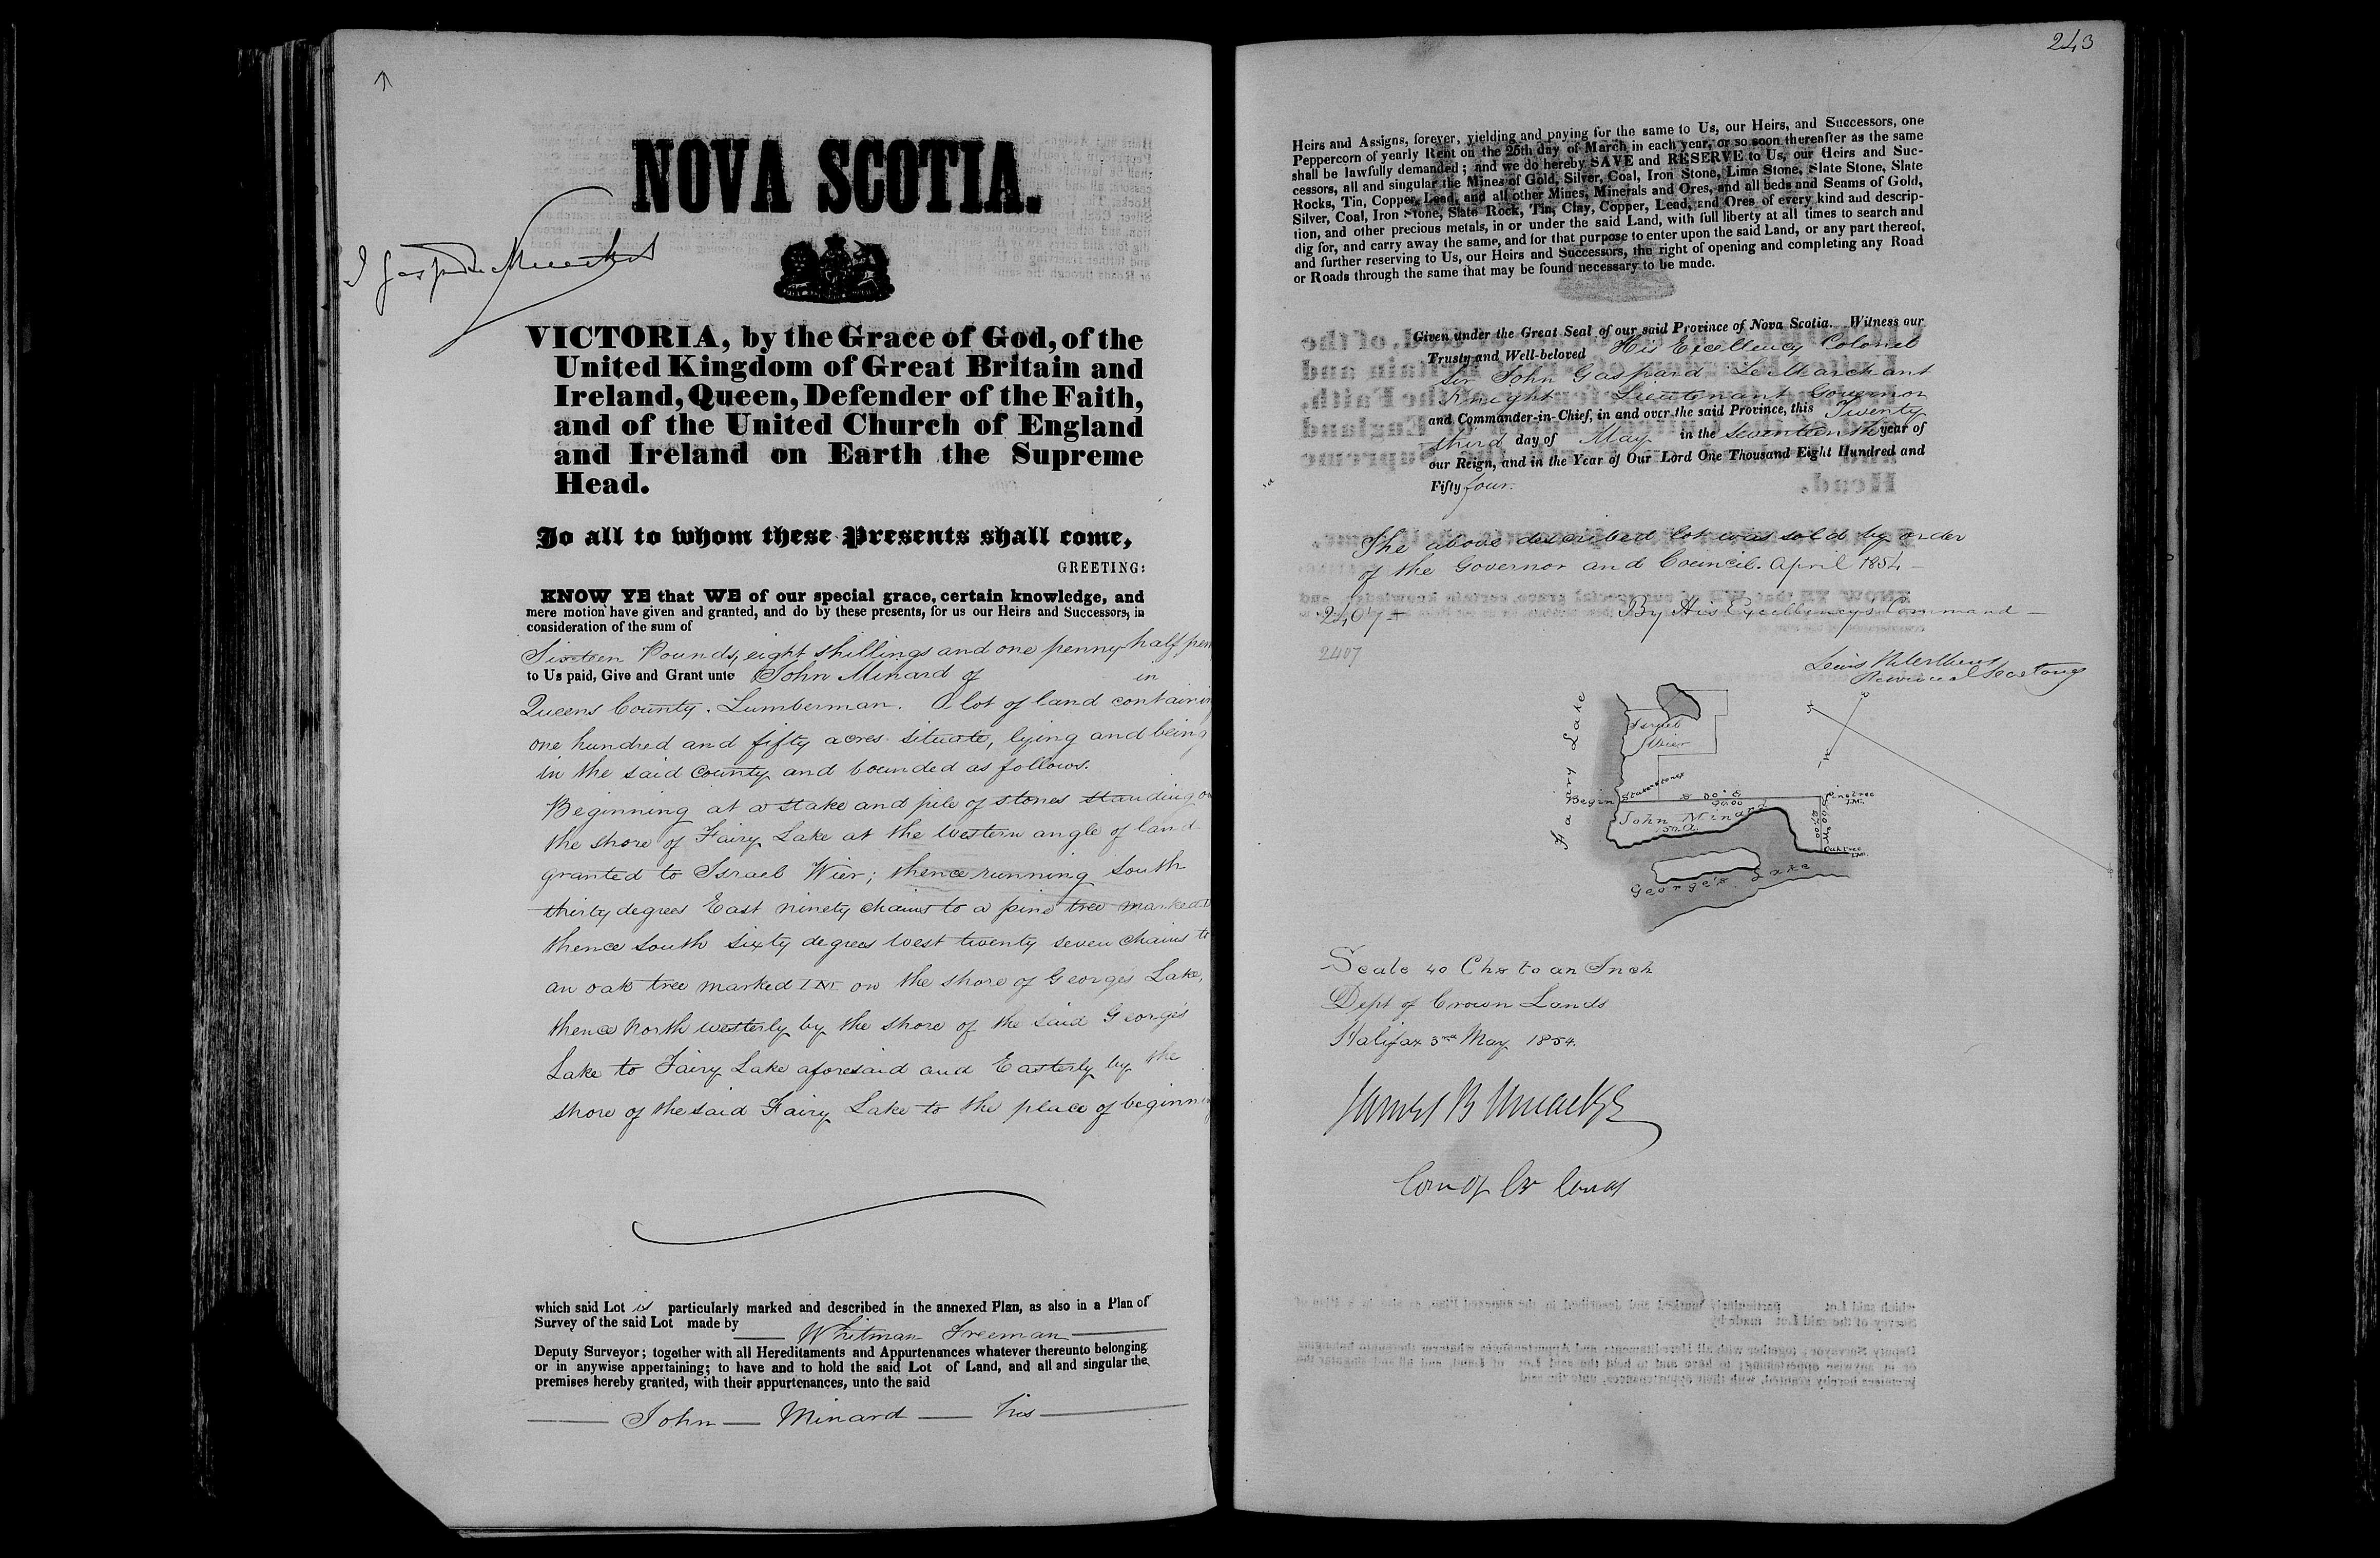 NOVA SCOTIA.
VICTORIA, by the Grace of God, of the
United Kingdom of Great Britain and
Ireland, Queen, Defender of the Faith,
and of the United Church of England
and Ireland on Earth the Supreme
Head.
To all to whom these Presents shall come,
GREETING:
KNOW YE that WE of our special grace, certain knowledge, and
mere motion have given and granted, and do by these presents, for us our Heirs and Successors, in
consideration of the sum of
Sixteen Pounds, eight shillings and one penny half pen
to Us paid, Give and Grant unto John Minard of in
Queens County. Lumberman. A lot of land containin
one hundred and fifty acres situate, lying and being
in the said County and bounded as follows.
Beginning at a stake and pile of stones standing on
the shore of Fairy Lake at the Western angle of land
granted to Israel Wier; thence running South
thirty degrees East ninety chains to a pine tree marked
thence South sixty degrees West twenty seven chains to
an oak tree marked I.M. on the shore of George's Lake,
thence North westerly by the shore of the said George's
Lake to Fairy Lake aforesaid and Easterly by the
shore of the said Fairy Lake to the place of beginning
which said Lot is particularly marked and described in the annexed Plan, as also in a Plan of
Survey of the said Lot made by
Whitman Freeman
Deputy Surveyor; together with all Hereditaments and Appurtenances whatever thereunto belonging
or in anywise appertaining; to have and to hold the said Lot of Land, and all and singular the
premises hereby granted, with their appurtenances, unto the said
John Minard his
243
Heirs and Assigns, forever, yielding and paying for the same to Us, our Heirs, and Successors, one
Peppercorn of yearly Rent on the 25th day of March in each year, or so soon thereafter as the same
shall be lawfully demanded; and we do hereby SAVE and RESERVE to Us, our Heirs and Suc-
cessors, all and singular the Mines of Gold, Silver, Coal, Iron Stone, Lime Stone, Slate Stone, Slate
Rocks, Tin, Copper, Lead, and all other Mines, Minerals and Ores, and all beds and Seams of Gold,
Silver, Coal, Iron Stone, Slate Rock, Tin, Clay, Copper, Lead, and Ores of every kind and descrip-
tion, and other precious metals, in or under the said Land, with full liberty at all times to search and
dig for, and carry away the same, and for that purpose to enter upon the said Land, or any part thereof,
and further reserving to Us, our Heirs and Successors, the right of opening and completing any Road
or Roads through the same that may be found necessary to be made.
Given under the Great Seal of our said Province of Nova Scotia. Witness our
Trusty and Well-beloved His Excellency Colonel
Sir John Gaspard Le Marchant
Knight Lieutenant Governor
and Commander-in-Chief, in and over the said Province, this Twenty
third day of May in the Seventeenth year of
our Reign, and in the Year of Our Lord One Thousand Eight Hundred and
Fifty four.
The above described lot was sold by order
of the Governor and Council. April 1854
2407
By His Excellency's Command
2407
Provincial Secretary
Fairy Lake
Israel
Wier
Begin
Stake & stones
S 30° E
90.00
Pine tree
I.M.
John Minard
150 A.
S 60° W
27.00
Oak tree
I.M.
George's Lake
Scale 40 Chs to an Inch
Dept of Crown Lands
Halifax 3rd May 1854.
James B Uniacke
Com of Cr Lands